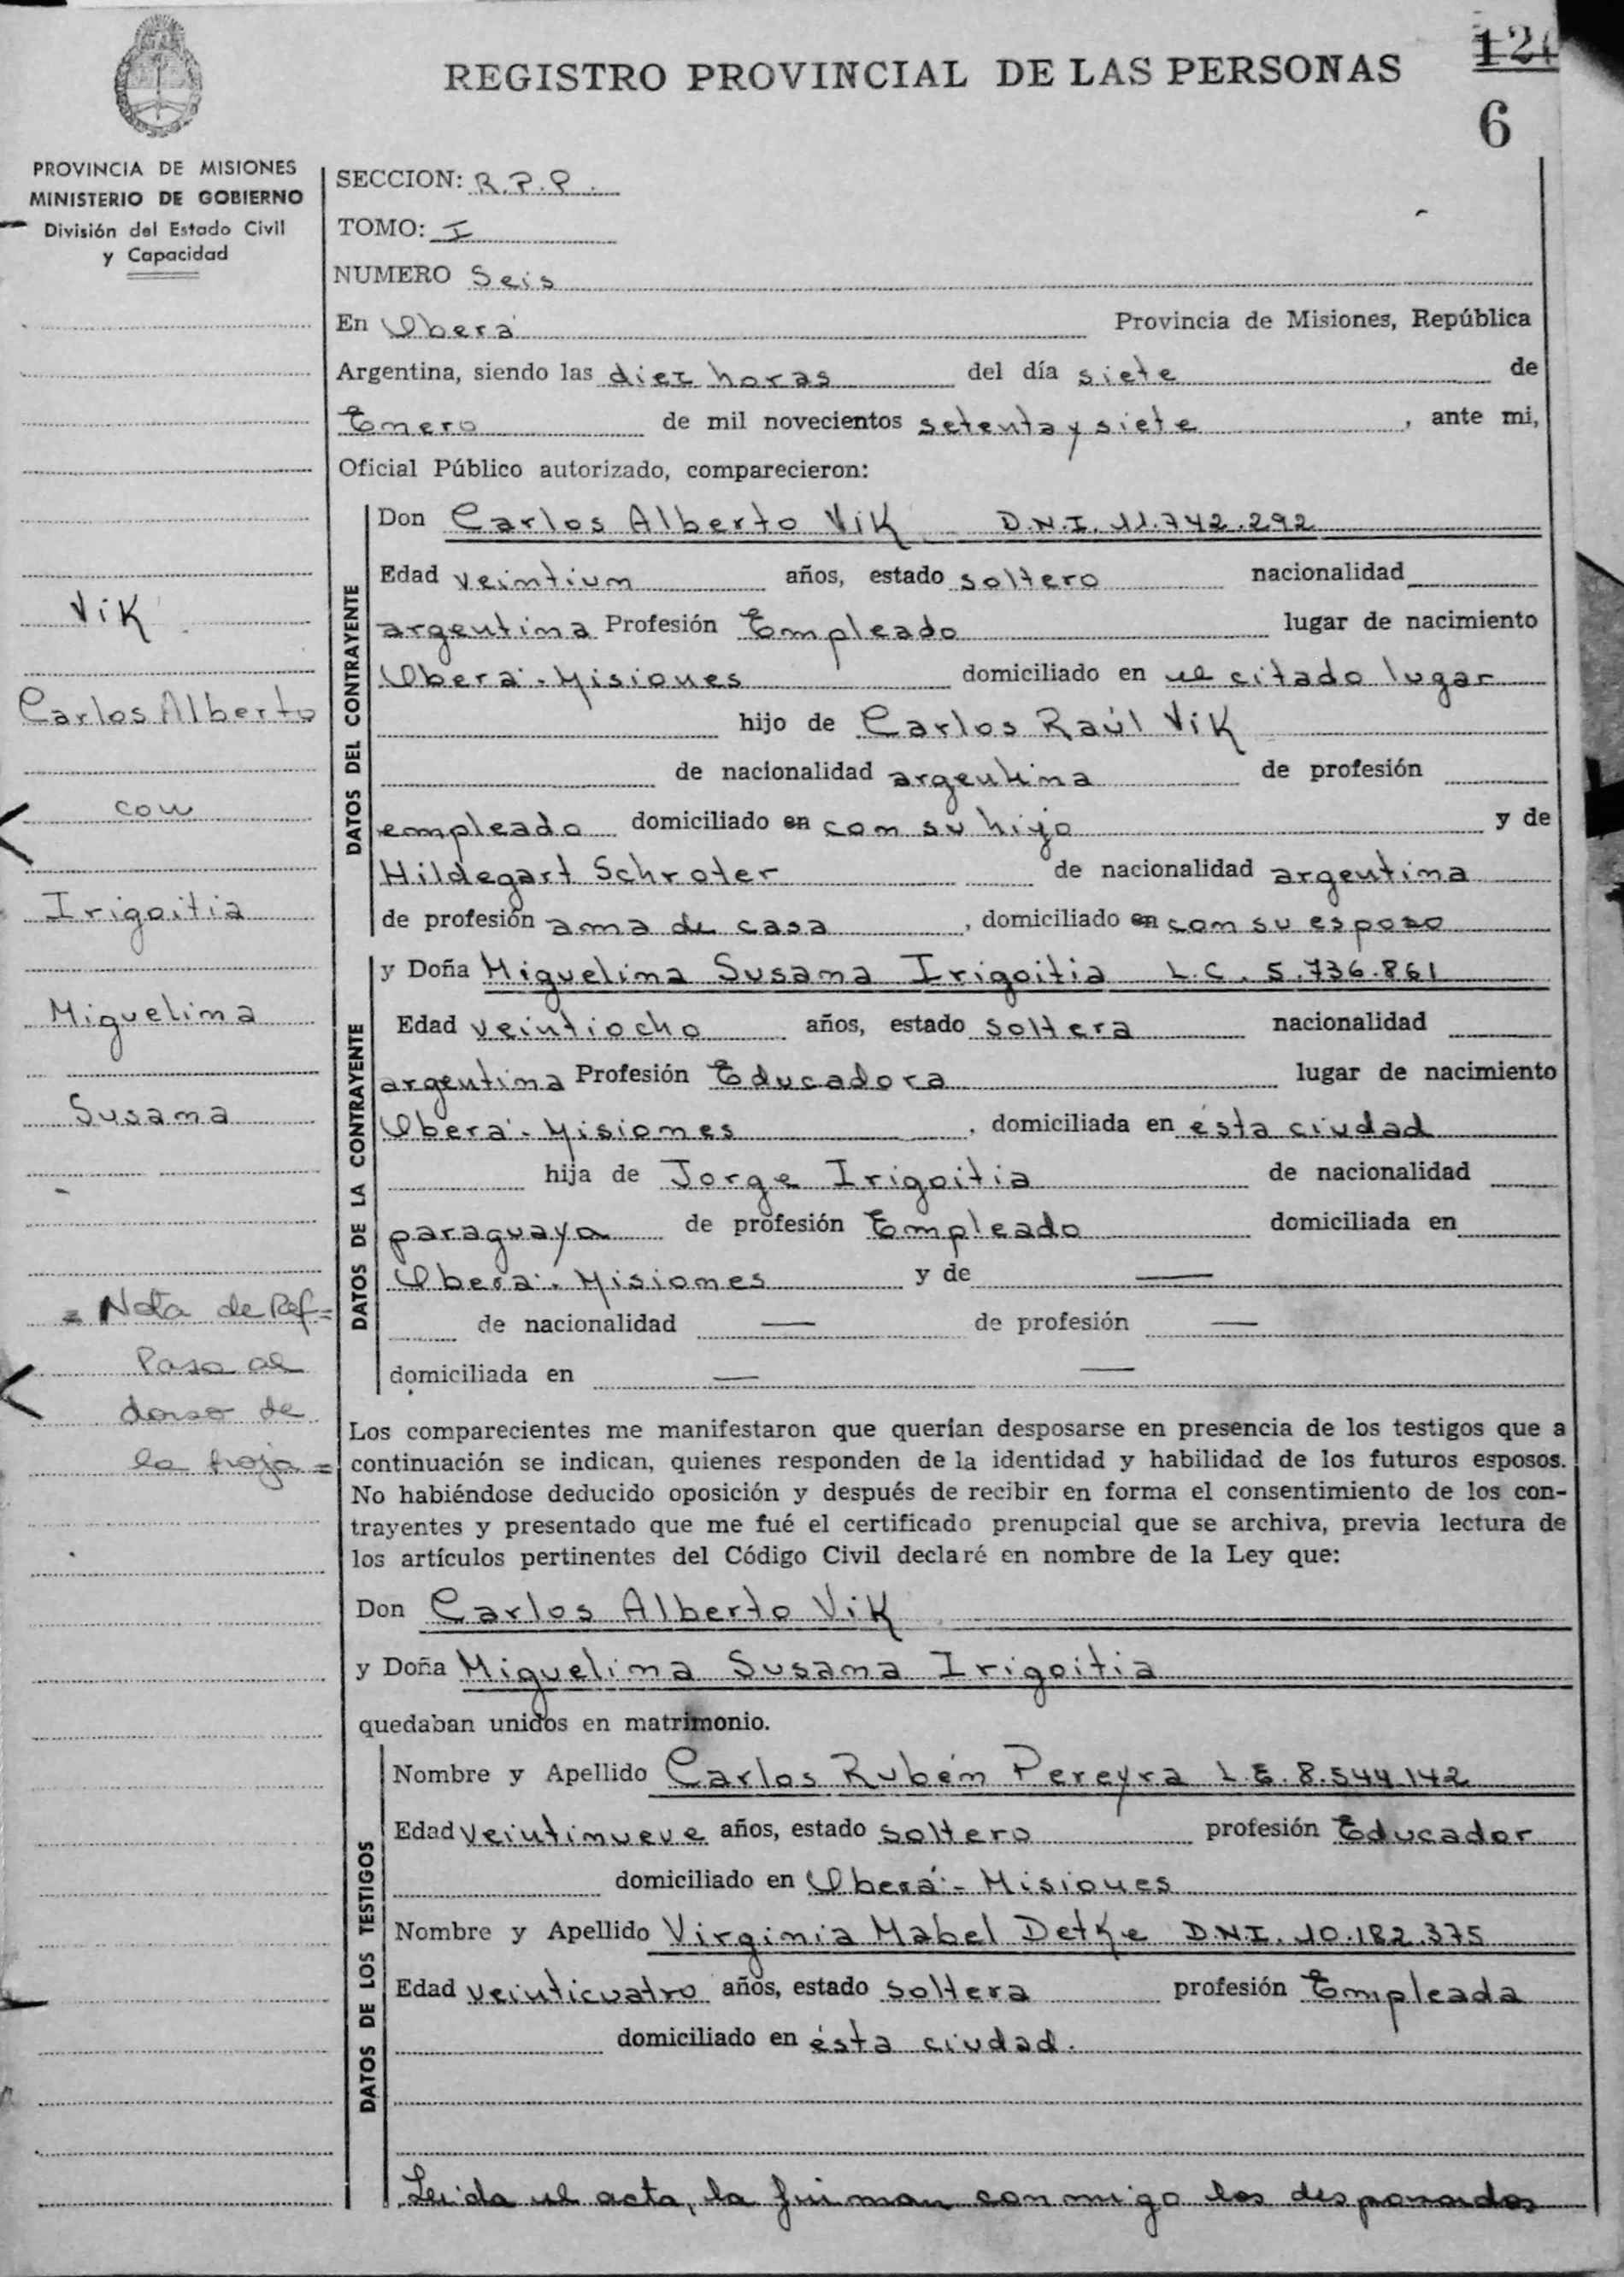 REGISTRO PROVINCIAL DE LAS PERSONAS
6
PROVINCIA DE MISIONES
MINISTERIO DE GOBIERNO
División del Estado Civil
y Capacidad
Vik
Carlos Alberto
con
Irigoitia
Miguelina
Susana
= Nota de Ref =
Pasa al
dorso de
la hoja =
SECCION: R.P.P.
TOMO: I
NUMERO Seis
En Oberá Provincia de Misiones, República
Argentina, siendo las diez horas del día siete de
Enero de mil novecientos setenta y siete, ante mi,
Oficial Público autorizado, comparecieron:
DATOS DEL CONTRAYENTE
Don Carlos Alberto Vik D.N.I. 11.742.292
Edad veintiun años, estado soltero nacionalidad
argentina Profesión Empleado lugar de nacimiento
Oberá - Misiones domiciliado en el citado lugar
hijo de Carlos Raúl Vik
de nacionalidad argentina de profesión
empleado domiciliado en con su hijo y de
Hildegart Schroter de nacionalidad argentina
de profesión ama de casa, domiciliado en con su esposo
DATOS DE LA CONTRAYENTE
y Doña Miguelina Susana Irigoitia L.C. 5.736.861
Edad veintiocho años, estado soltera nacionalidad
argentina Profesión Educadora lugar de nacimiento
Oberá - Misiones, domiciliada en ésta ciudad
hija de Jorge Irigoitia de nacionalidad
paraguaya de profesión Empleado domiciliada en
Oberá - Misiones y de —
de nacionalidad — de profesión —
domiciliada en — —
Los comparecientes me manifestaron que querían desposarse en presencia de los testigos que a
continuación se indican, quienes responden de la identidad y habilidad de los futuros esposos.
No habiéndose deducido oposición y después de recibir en forma el consentimiento de los con-
trayentes y presentado que me fué el certificado prenupcial que se archiva, previa lectura de
los artículos pertinentes del Código Civil declaré en nombre de la Ley que:
Don Carlos Alberto Vik
y Doña Miguelina Susana Irigoitia
quedaban unidos en matrimonio.
DATOS DE LOS TESTIGOS
Nombre y Apellido Carlos Rubén Pereyra L.E. 8.544.142
Edad veintinueve años, estado soltero profesión Educador
domiciliado en Oberá - Misiones
Nombre y Apellido Virginia Mabel Detke D.N.I. 10.182.375
Edad veinticuatro años, estado soltera profesión Empleada
domiciliado en ésta ciudad.
Leida el acta, la firman conmigo los desposados